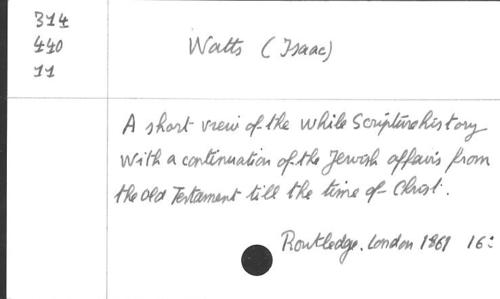 314
440
11
Watts (Isaac)
A short view of the while Scripture history
with a continuation of the Jewish affairs from
the old Testament till the time of Christ.
Routledge. London 1861 16: